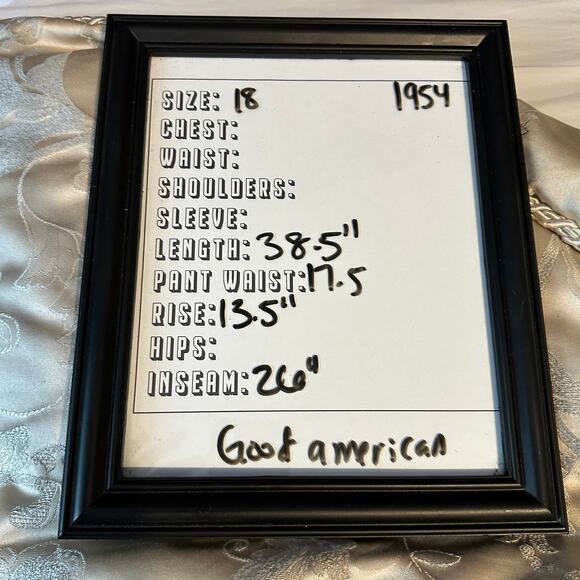 SIZE: 18 1954
CHEST:
WAIST:
SHOULDERS:
SLEEVE:
LENGTH: 38.5"
PANT WAIST: 17.5
RISE: 13.5"
HIPS:
INSEAM: 26"
Good american